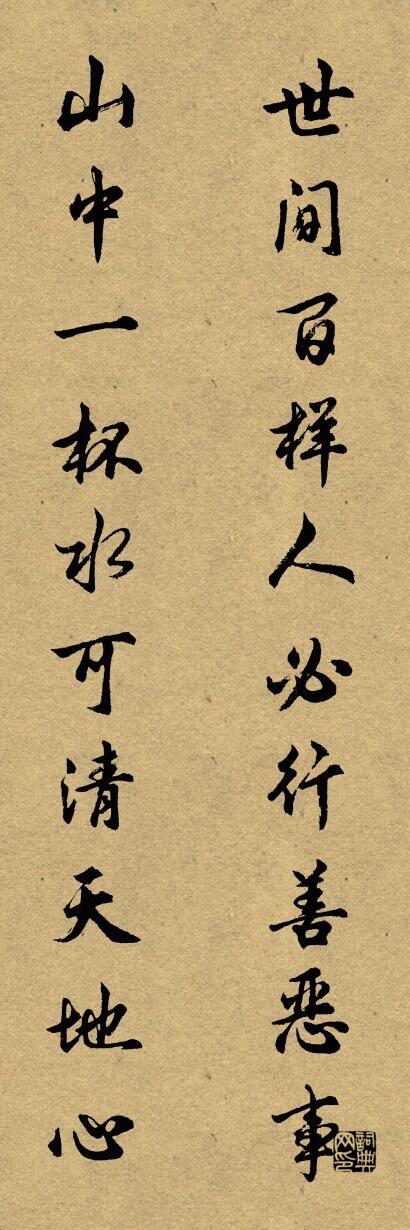 世间百样人必行善恶事
山中一杯水可清天地心
詞典网印